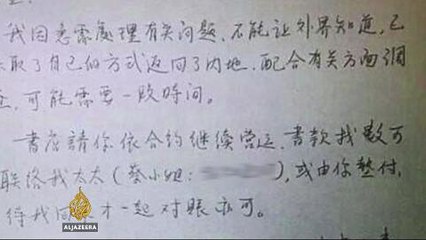 我因急需處理有关问题,不能让外界知道,已
取了自己的方式返回了内地,配合有关方面調
查,可能需要一段時间。
書店請你依合約继续营运,書款找數可
联络我太太(蔡小姐: ),或由你墊付,
待我回 才一起对賬亦可。
ALJAZEERA